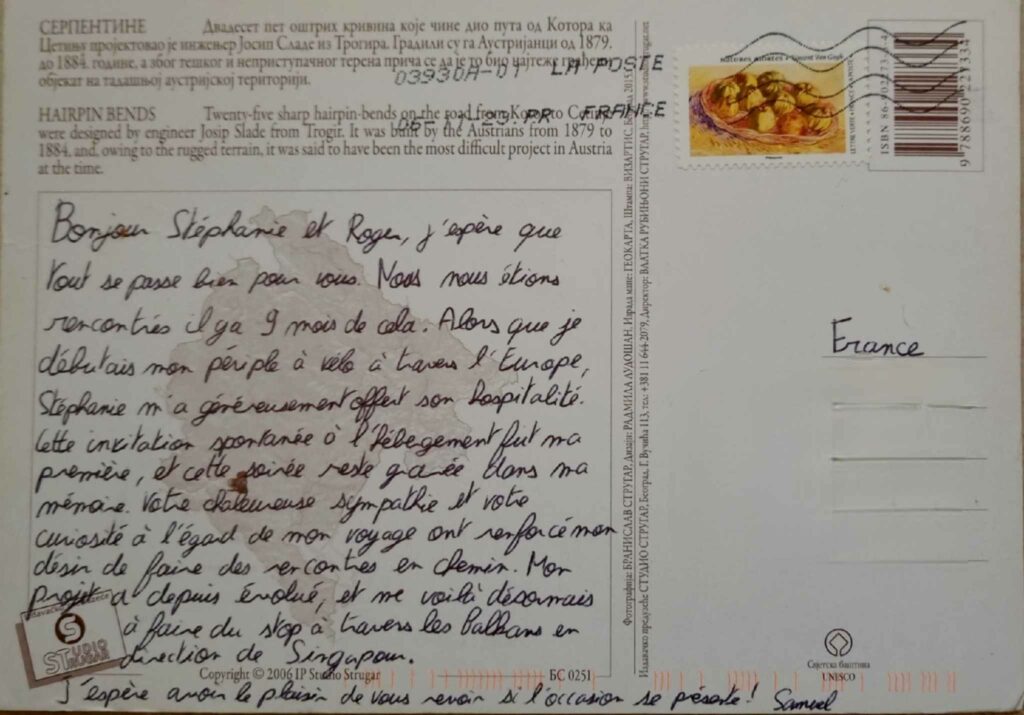 СЕРПЕНТИНЕ Двадесет пет оштрих кривина које чине дио пута од Котора ка
Цетињу пројектовао је инжењер Јосип Сладе из Трогира. Градили су га Аустријанци од 1879.
до 1884. године, а због тешког и неприступачног терена прича се да је то био најтеже грађени
објекат на тадашњој аустријској територији.
HAIRPIN BENDS Twenty-five sharp hairpin-bends on the road from Kotor to
were designed by engineer Josip Slade from Trogir. It was built by the Austrians from 1879 to
1884, and, owing to the rugged terrain, it was said to have been the most difficult project in Austria
at the time.
03930A-01 LA POSTE
PP FRANCE
Vincent Van Gogh
Bonjour Stéphanie et Roger, j'espère que
tout se passe bien pour vous. Nous nous étions
rencontrés il y a 9 mois de cela. Alors que je
débutais mon périple à vélo à travers l'Europe,
Stéphanie m'a généreusement offert son hospitalité.
Cette invitation spontanée à l'hébegement fut ma
première, et cette soirée reste gravée dans ma
mémoire. Votre chaleureuse sympathie et votre
curiosité à l'égard de mon voyage ont renforcé mon
désir de faire des rencontres en chemin. Mon
projet a depuis évolué, et me voilà désormais
à faire du stop à travers les Balkans en
direction de Singapour.
J'espère avoir le plaisir de vous revoir si l'occasion se présente! Samuel
STUDIO
STRUGAR
Copyright © 2006 IP Studio Strugar
БС 0251
Фотографија: БРАНИСЛАВ СТРУГАР, Дизајн: РАДМИЛА ЛУДОШАН, Израда мапе: ГЕОКАРТА, Штампа: ВИЗАРТИС,
Издавачко предузеће СТУДИО СТРУГАР, Београд, Г. Вучића 113, тел: +381 11 644-2079, Директор: ВЛАТКА РУБИЊОНИ СТРУГАР,
France
Свјетска баштина
UNESCO